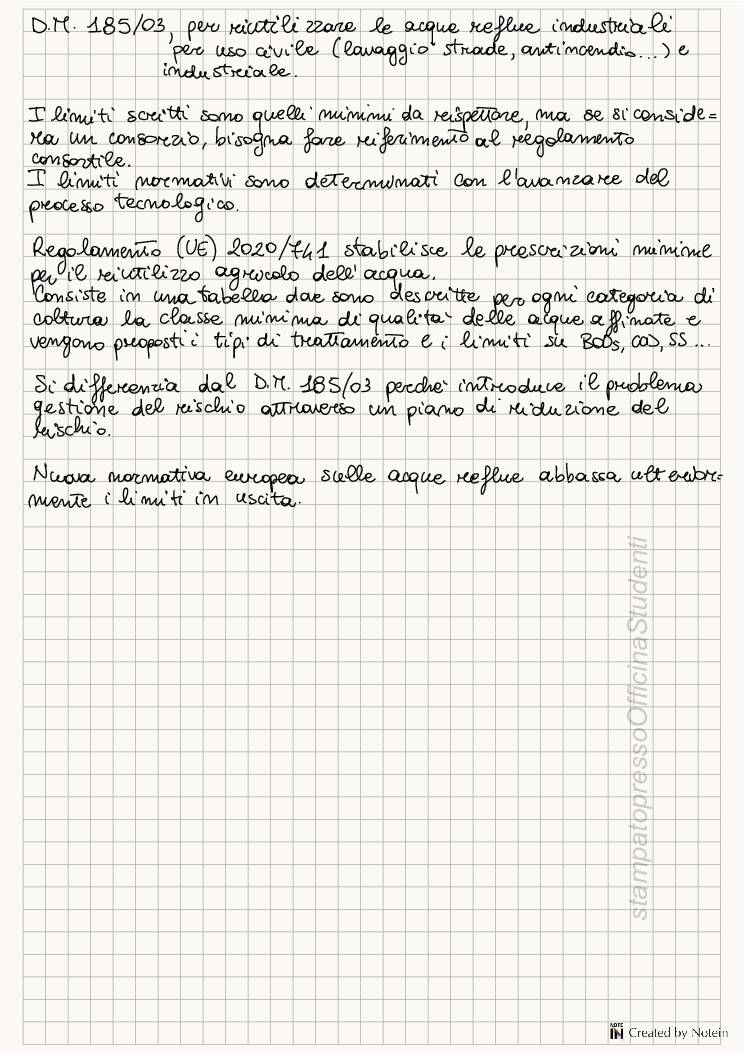 D.M. 185/03, per riutilizzare le acque reflue industriali
per uso civile (lavaggio strade, antincendio...) e
industriale.
I limiti scritti sono quelli minimi da rispettare, ma se si conside=
ra un consorzio, bisogna fare riferimento al regolamento
consortile.
I limiti normativi sono determinati con l'avanzare del
processo tecnologico.
Regolamento (UE) 2020/741 stabilisce le prescrizioni minime
per il riutilizzo agricolo dell'acqua.
Consiste in una tabella dove sono descritte per ogni categoria di
coltura la classe minima di qualità delle acque affinate e
vengono proposti i tipi di trattamento e i limiti su BOD5, COD, SS ...
Si differenzia dal D.M. 185/03 perché introduce il problema
gestione del rischio attraverso un piano di riduzione del
rischio.
Nuova normativa europea sulle acque reflue abbassa ulterior=
mente i limiti in uscita.
stampatopressoOfficinaStudenti
NOTE IN Created by Notein